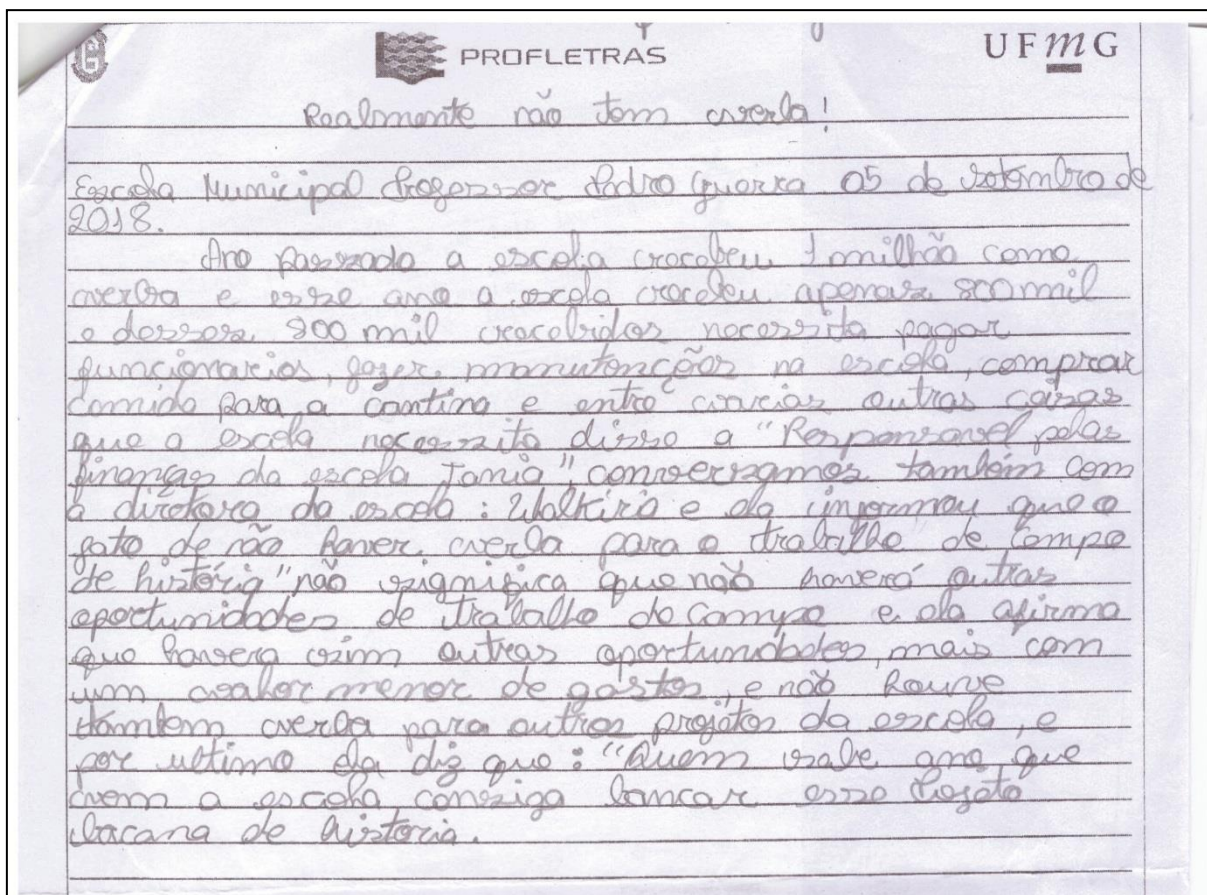 PROFLETRAS
UFmG
Realmente não tem verba!
Escola Municipal Professor Pedro Guerra 05 de setembro de
2018.
Ano passado a escola recebeu 1 milhão como
verba e esse ano a escola recebeu apenas 800 mil
e desses 800 mil recebidos necessita pagar
funcionarios, fazer manutenções na escola, comprar
comida para a cantina e entre varias outras coisas
que a escola necessita disse a "Responsavel pelas
finanças da escola Tania", conversamos também com
a diretora da escola: Walkiria e ela informou que o
fato de não haver verba para o trabalho de campo
de história" não significa que não haverá outras
oportunidades de trabalho de campo e ela afirma
que havera sim outras oportunidades, mais com
um valor menor de gastos, e não houve
tambem verba para outros projetos da escola, e
por ultimo ela diz que: "Quem sabe ano que
vem a escola consiga bancar esse projeto
bacana de historia.